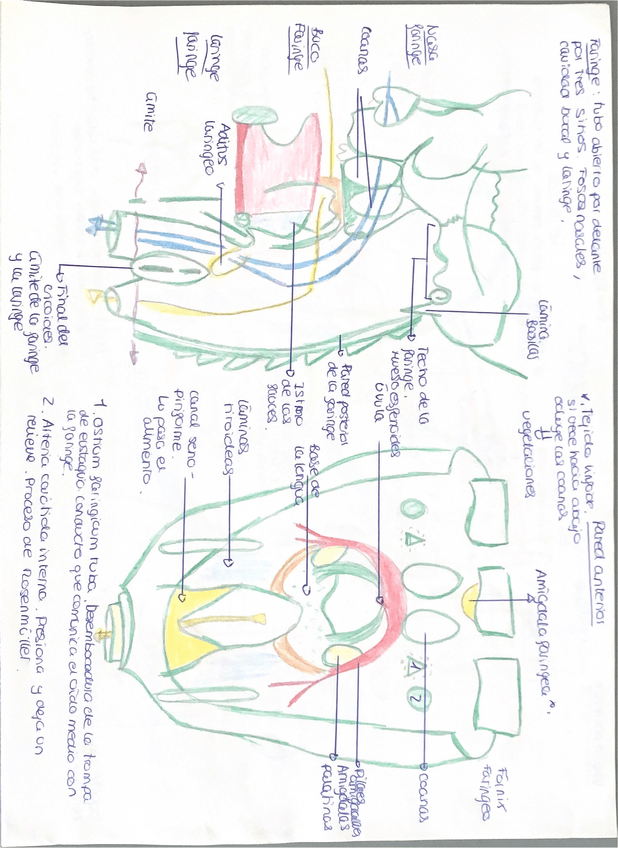 Faringe: tubo abierto por delante
por tres sitios. Fosas nasales,
cavidad bucal y laringe.
Naso
faringe
coanas
Buco
Faringe
Laringe
faringe
Límite
Aditus
Laringeo
Lámina
basilar
Techo de la
faringe.
Hueso esfenoides
Pared posterior
de la faringe
Istmo
de las
fauces.
Final del
cricoides.
Límite de la faringe
y la laringe
Pared anterior
*. Tejido linfoide
si crece hacia abajo
ocluye las coanas
vegetaciones
Amígdala faringea *.
Fornix
Faringeo
úvula
Base de
la lengua
Láminas
tiroideas
canal seno-
piriforme.
Lo pasa el
alimento.
coanas
Pilares
amigdalinos
Amígdalas
palatinas
1
2
1. Ostium faringicum tuba. Desembocadura de la trompa
de eustaquio conducto que comunica el oído medio con
la faringe.
2. Arteria carótida interna. Presiona y deja un
relieve. Proceso de Rosenmüller.